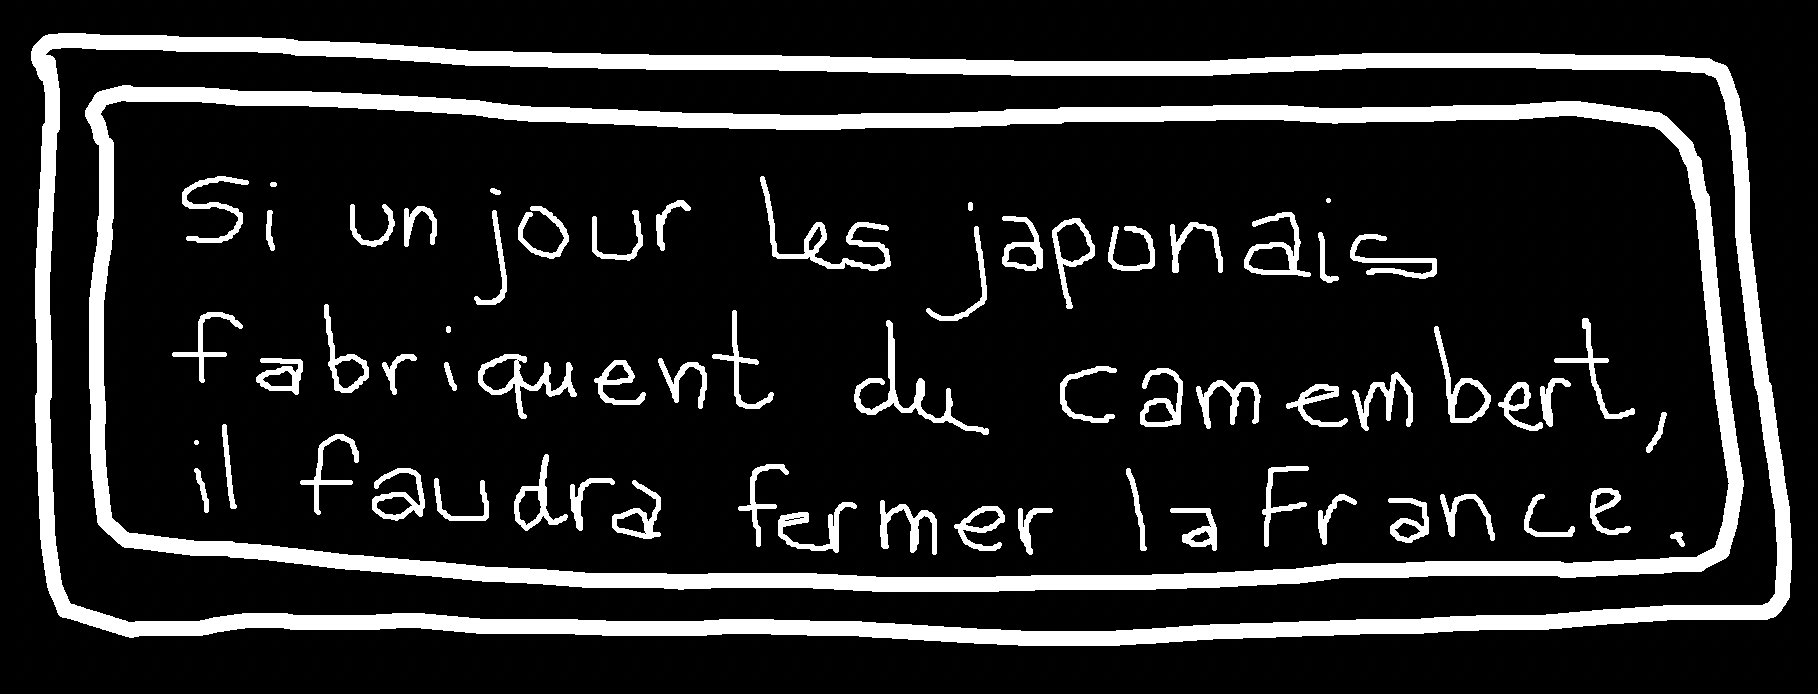 Si un jour les japonais
fabriquent du camembert,
il faudra fermer la France.